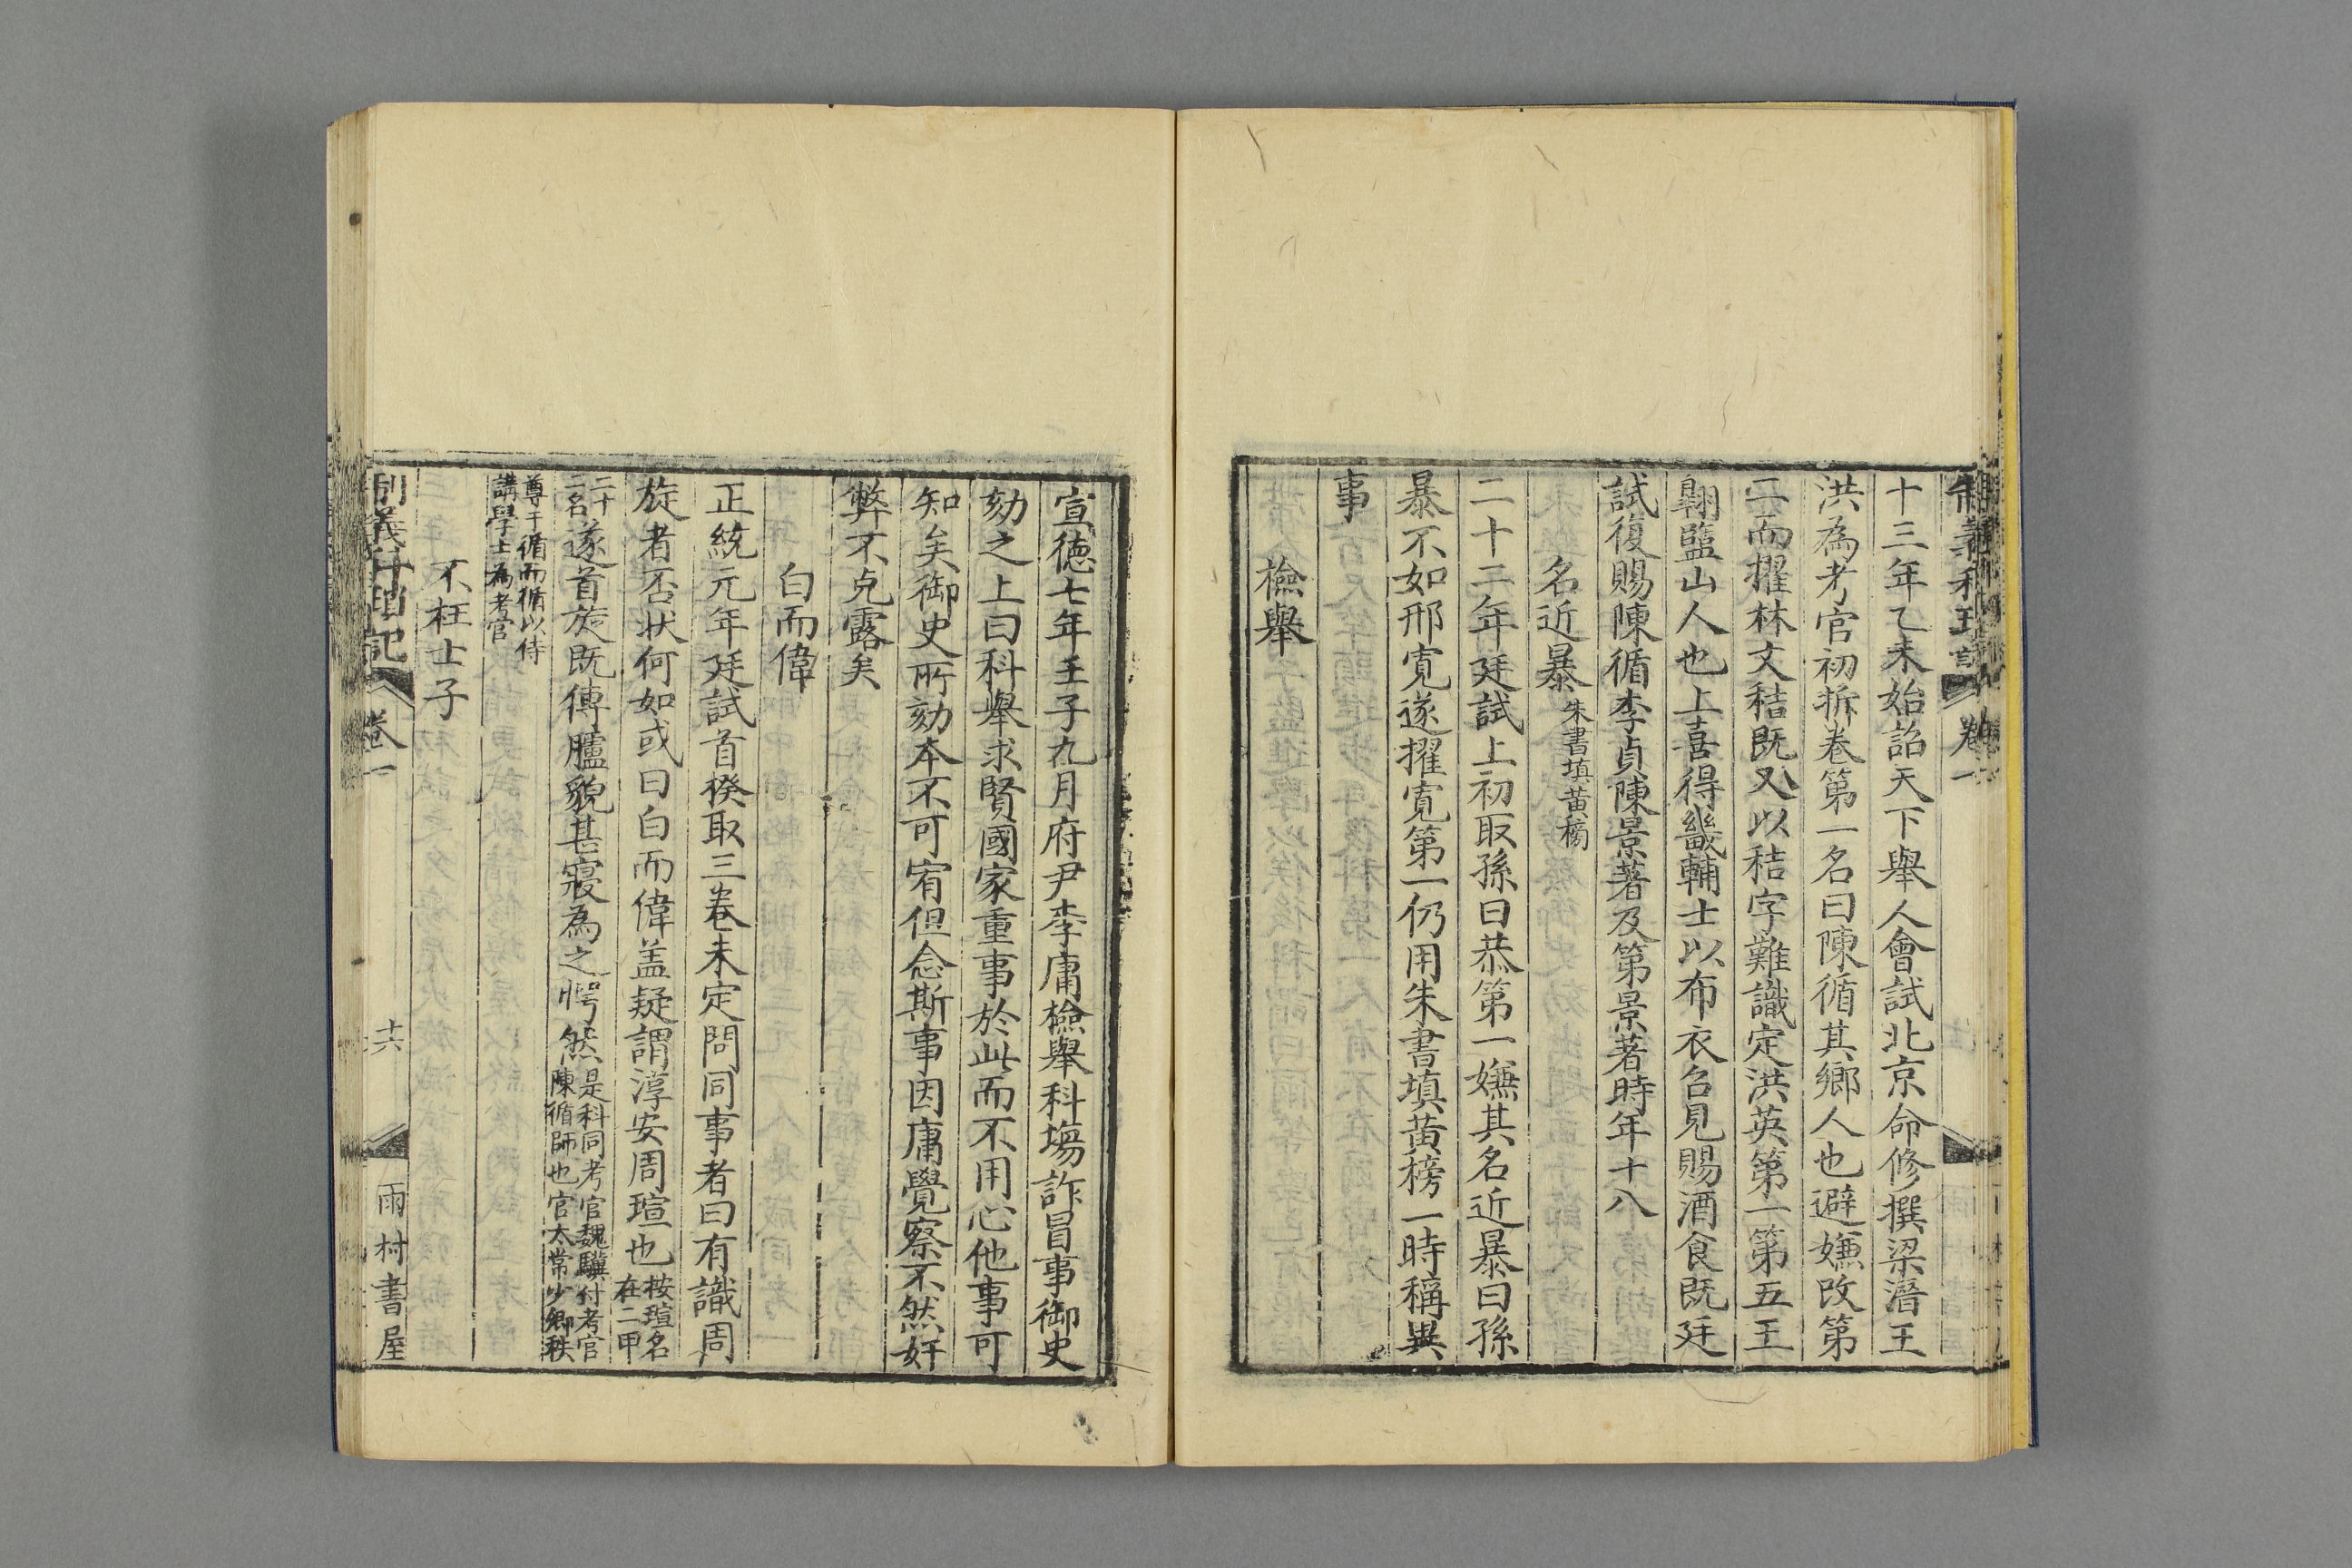 制義科瑣記 卷一
十三年乙未始詔天下舉人會試北京命修撰梁潛王
洪為考官初拆卷第一名曰陳循其鄉人也避嫌改第
二而擢林文秸既又以秸字難識定洪英第一第五王
翱鹽山人也上喜得畿輔士以布衣召見賜酒食既廷
試復賜陳循李貞陳景著及第景著時年十八
名近暴 朱書填黃榜
二十二年廷試上初取孫曰恭第一嫌其名近暴曰孫
暴不如邢寬遂擢寬第一仍用朱書填黃榜一時稱異
事
檢舉
宣德七年壬子九月府尹李庸檢舉科場詐冒事御史
劾之上曰科舉求賢國家重事於此而不用心他事可
知矣御史所劾本不可宥但念斯事因庸覺察不然奸
弊不克露矣
白而偉
正統元年廷試首揆取三卷未定問同事者曰有識周
旋者否狀何如或曰白而偉盖疑謂淳安周瑄也 按瑄名在二甲
二十二名 遂首旋既傳臚貌甚寢為之愕然 是科同考官魏驥付考官陳循師也官太常少卿秩
尊于循而循以侍講學士為考官
不枉士子
制義科瑣記 卷一 十六 雨村書屋